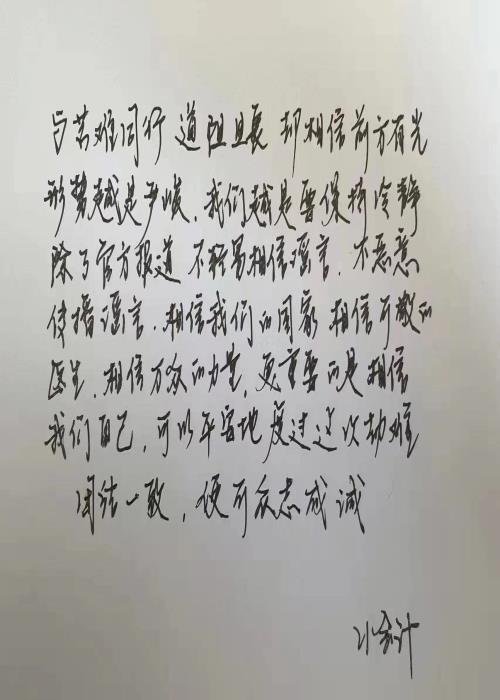 与苦难同行 道阻且长 却相信前方有光
形势越是严峻，我们越是要保持冷静
除了官方报道 不轻易相信谣言，不恶意
传播谣言，相信我们的国家 相信可敬的
医生，相信万众的力量，更重要的是相信
我们自己，可以平安地度过这次劫难
团结一致，便可众志成诚
小会计